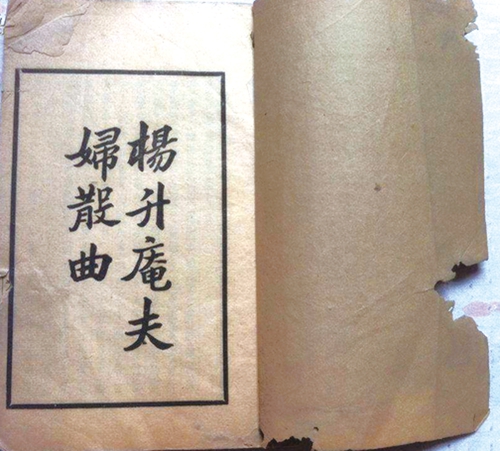 楊升庵夫
婦散曲